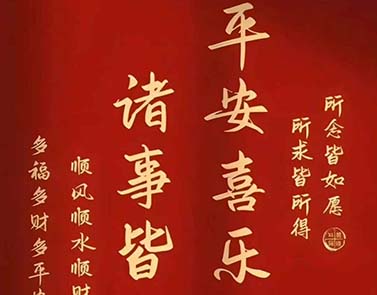 所念皆如愿
所求皆所得
平安喜乐
诸事皆
顺风顺水顺财
多福多财多平